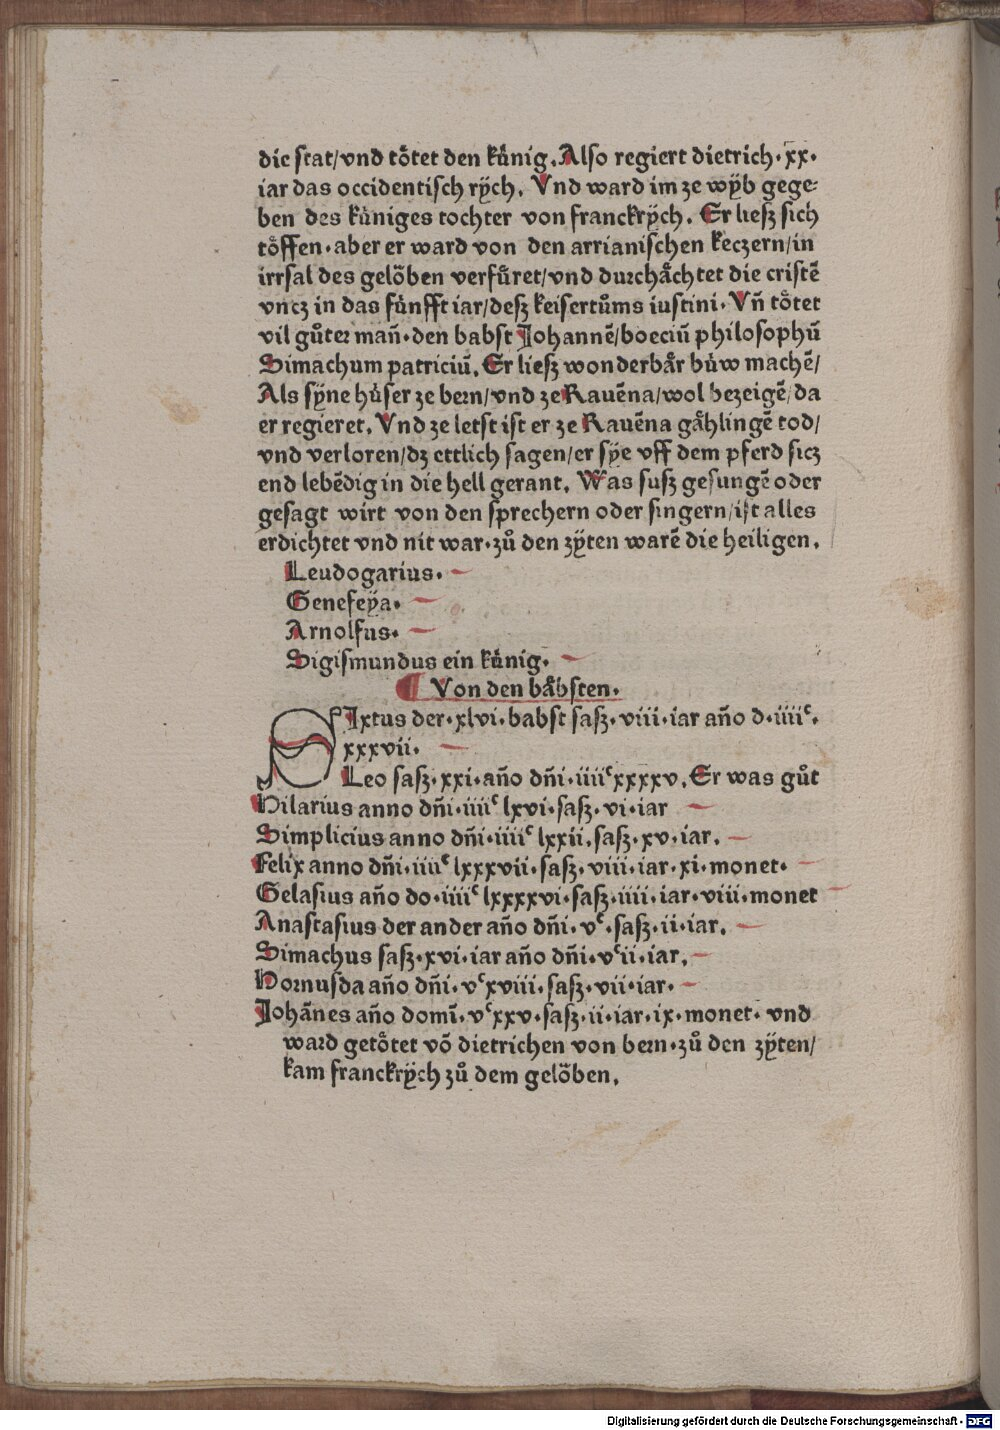 die stat/vnd tötet den ku̇nig. Also regiert dietrich·xx·
iar das occidentisch rÿch. Vnd ward im ze wÿb gege⸗
ben des ku̇niges tochter von franckrÿch. Er liesz sich
töffen·aber er ward von den arrianischen keczern/in
irrsal des gelöben verfu̇ret/vnd durchåchtet die cristē
vncz in das fu̇nfft iar/desz keisertůms iustini·Vñ tötet
vil gůter mañ·den babst Johannē/boeciū philosophū
Simachum patriciū. Er liesz wonderbår bu̇w machē/
Als sÿne hu̇ser ze bern/vnd ze Rauēna/wol bezeigē/da
er regieret. Vnd ze letst ist er ze Rauēna gåhlingē tod/
vnd verloren/dz ettlich sagen/er sÿe vff dem pferd sicz
end lebēdig in die hell gerant. Was susz gesungē oder
gesagt wirt von den sprechern oder singern/ist alles
erdichtet vnd nit war·zů den zÿten warē die heiligen.
Leudogarius·
Genefeÿa·
Arnolfus·
Sigismundus ein ku̇nig·
¶ Von den båbsten·
SIxtus der·xlvi·babst sasz·viii·iar año d·iiiiᶜ·
xxxvii·
Leo sasz·xxi·año dñi·iiiiᶜxxxxv. Er was gůt
Hilarius anno dñi·iiiiᶜ lxvi·sasz·vi·iar
Simplicius anno dñi·iiiiᶜ lxxii.sasz·xv·iar.
Felix anno dñi·iiiiᶜ lxxxvii·sasz·viii·iar·xi·monet·
Gelasius año do·iiiiᶜ lxxxxvi·sasz·iiii·iar·viii·monet
Anastasius der ander año dñi·vᶜ·sasz·ii·iar.
Simachus sasz·xvi·iar año dñi·vᶜii·iar.
Hornusda año dñi·vᶜxviii·sasz·vii·iar·
Johānes año domī·vᶜxxv·sasz·ii·iar·ix·monet·vnd
ward getötet vō dietrichen von bern·zů den zÿten/
kam franckrÿch zů dem gelöben.
Digitalisierung gefördert durch die Deutsche Forschungsgemeinschaft - DFG